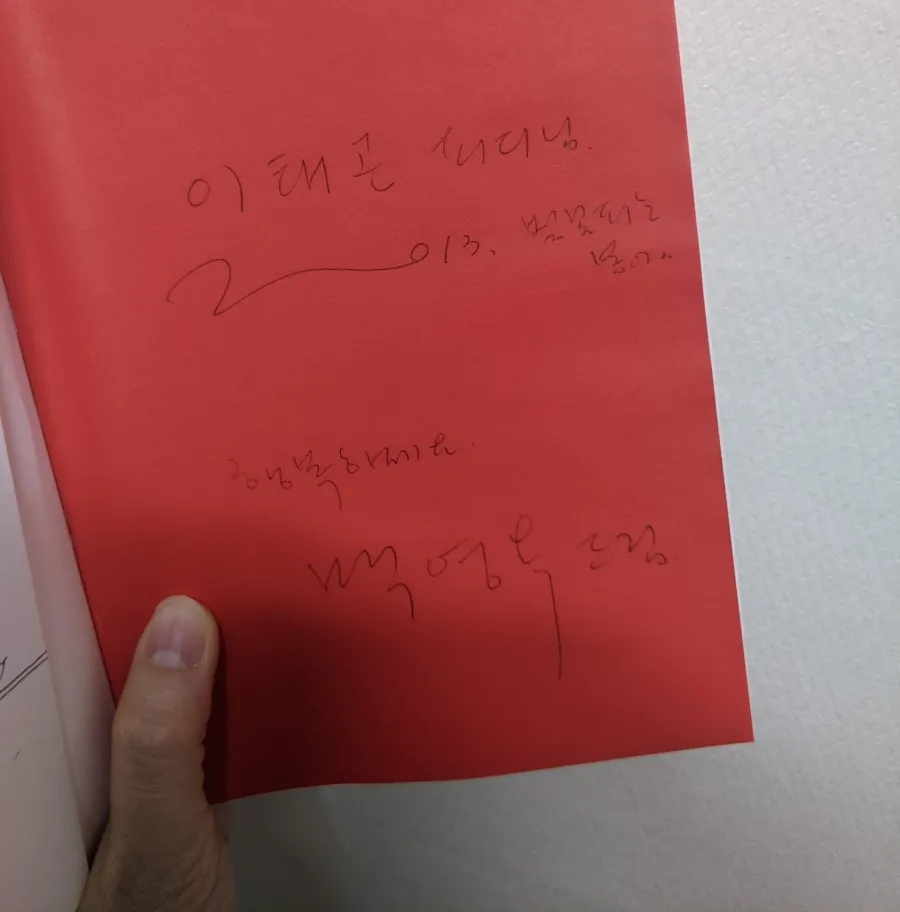 이태곤 피디님.
2013. 벚꽃피는
봄에.
행복하세요.
백영옥 드림.